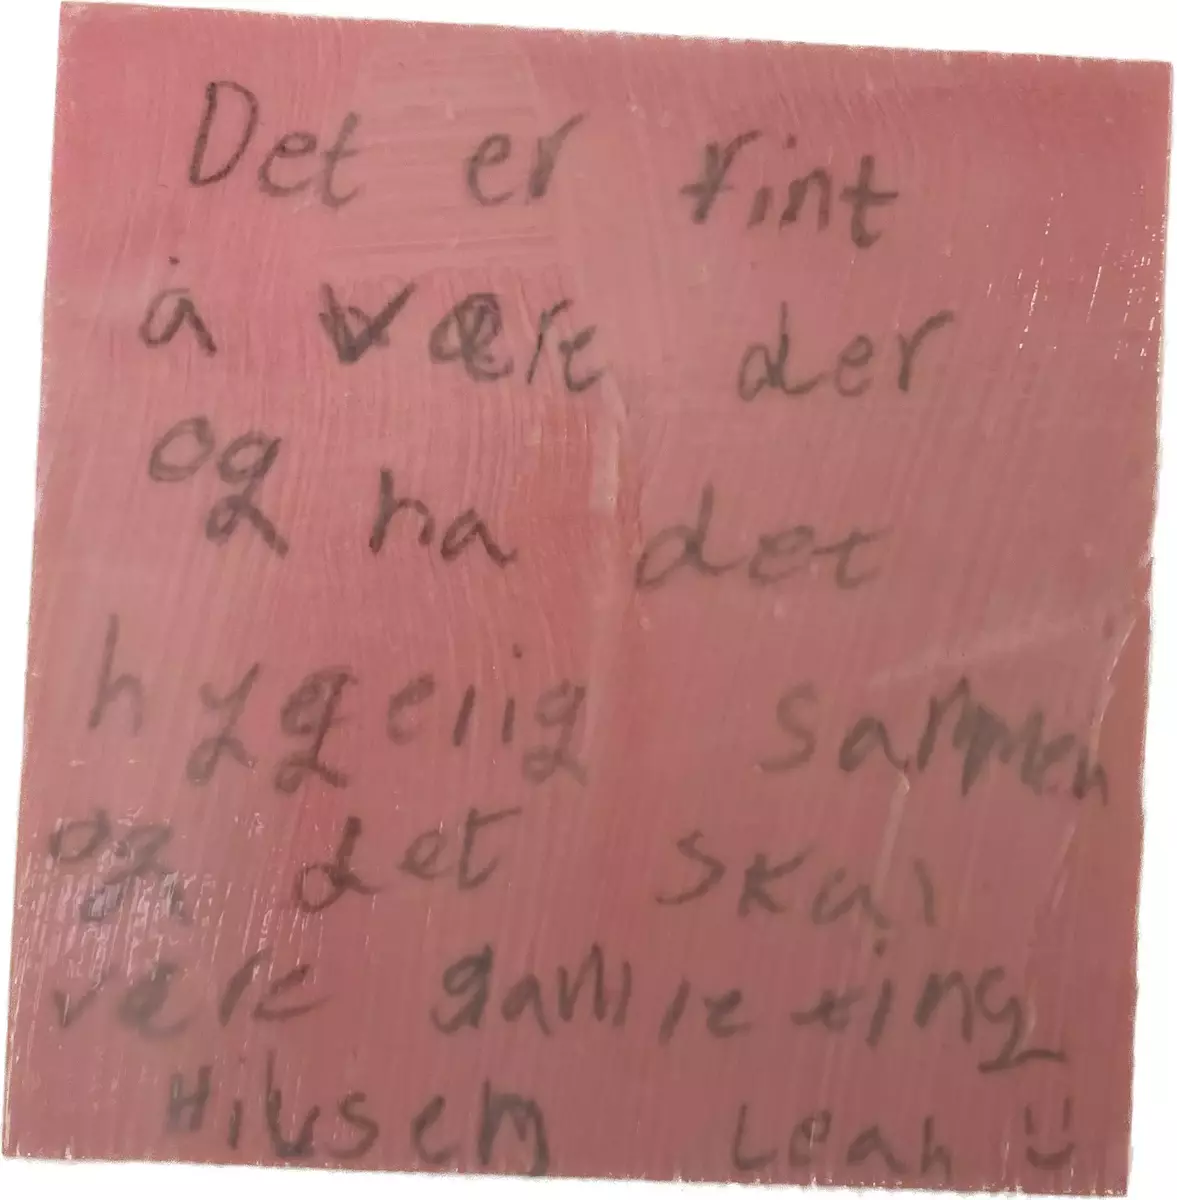 Det er fint
å være der
og ha det
hyggelig sammen
og det skal
være gamle ting
Hilsen Leah :)